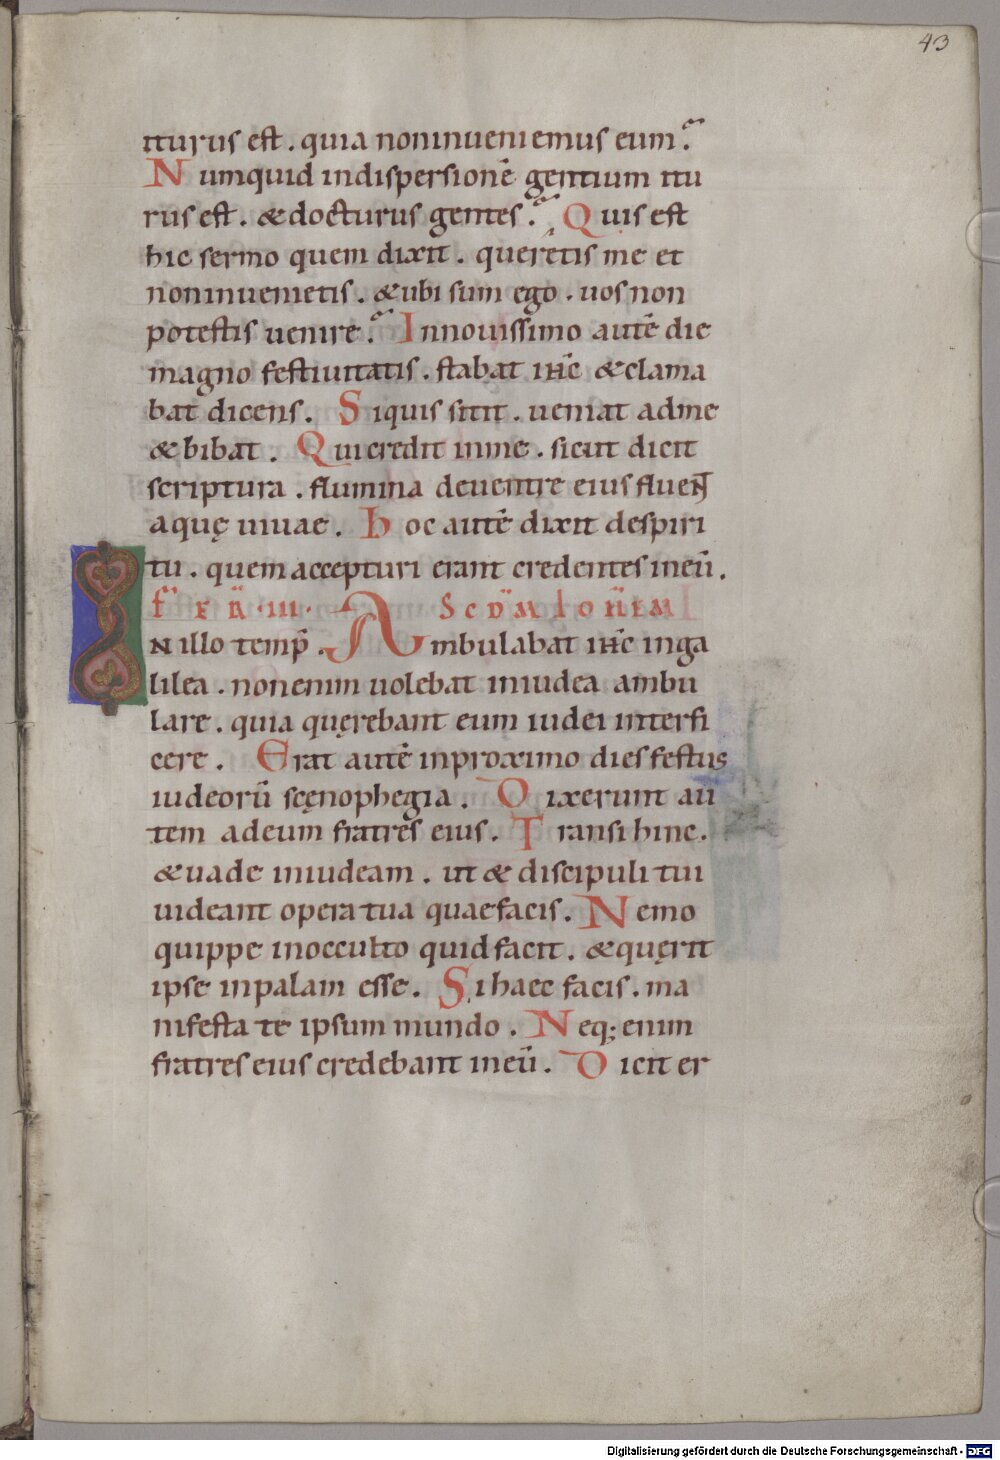 43
iturus est . quia noninueniemus eum?
Numquid indispersionē gentium itu
rus est . & docturus gentes? Quis est
hic sermo quem dixit . queretis me et
noninuenietis . & ubi sum ego . uos non
potestis uenire? Innouissimo autē die
magno festiuitatis . stabat ihc̄ & clama
bat dicens . Siquis sitit . ueniat adme
& bibat . Qui credit inme . sicut dicit
scriptura . flumina deuentre eius fluent
aquę uiuae . hoc autē dixit despiri
tu . quem accepturi erant credentes ineū .
FER̄ . III . SCDM IOHEM
IN illo temp̄ . Ambulabat ihc̄ inga
lilea . nonenim uolebat iniudea ambu
lare . quia quęrebant eum iudei interfi
cere . Erat autē inproximo dies festus
iudeorū scęnophegia . Dixerunt au
tem adeum fratres eius . Transi hinc .
& uade iniudeam . ut & discipuli tui
uideant opera tua quae facis . Nemo
quippe inocculto quid facit . & quęrit
ipse inpalam esse . Si haec facis . ma
nifesta te ipsum mundo . Neq; enim
fratres eius credebant ineū . Dicit er
Digitalisierung gefördert durch die Deutsche Forschungsgemeinschaft - DFG